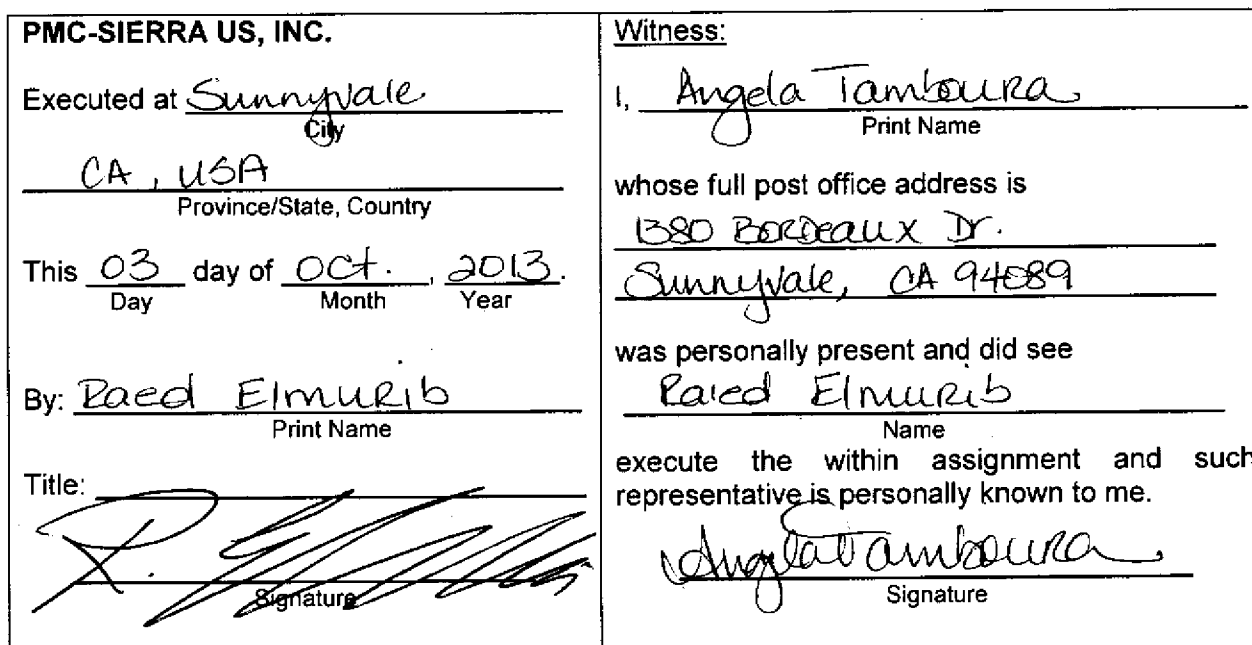 PMC-SIERRA US, INC.
Executed at Sunnyvale
City
CA, USA
Province/State, Country
This 03 day of Oct., 2013.
Day Month Year
By: Raed Elmurib
Print Name
Title:
Signature
Witness:
I, Angela Tamboura
Print Name
whose full post office address is
1380 Bordeaux Dr.
Sunnyvale, CA 94089
was personally present and did see
Raed Elmurib
Name
execute the within assignment and such
representative is personally known to me.
Angela Tamboura
Signature